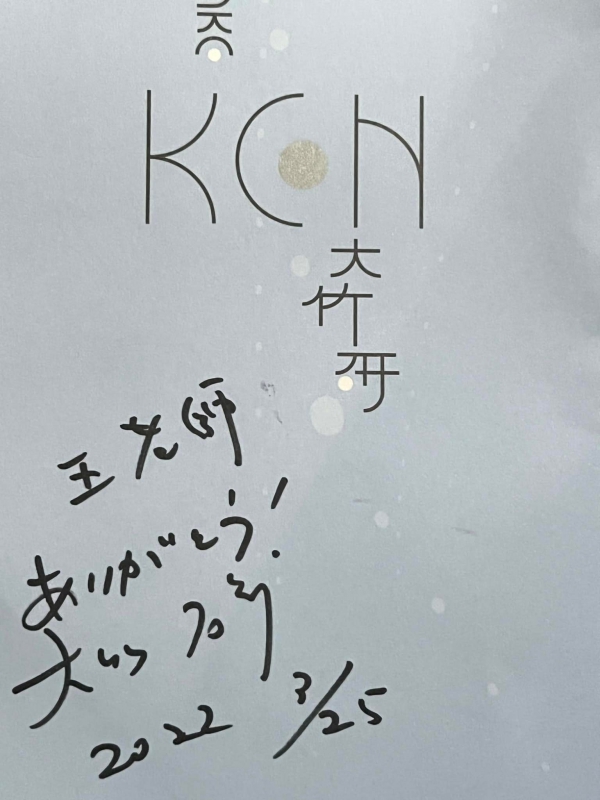 KEN
大竹研
王老師
ありがとう!
大竹 研
2022 3/25